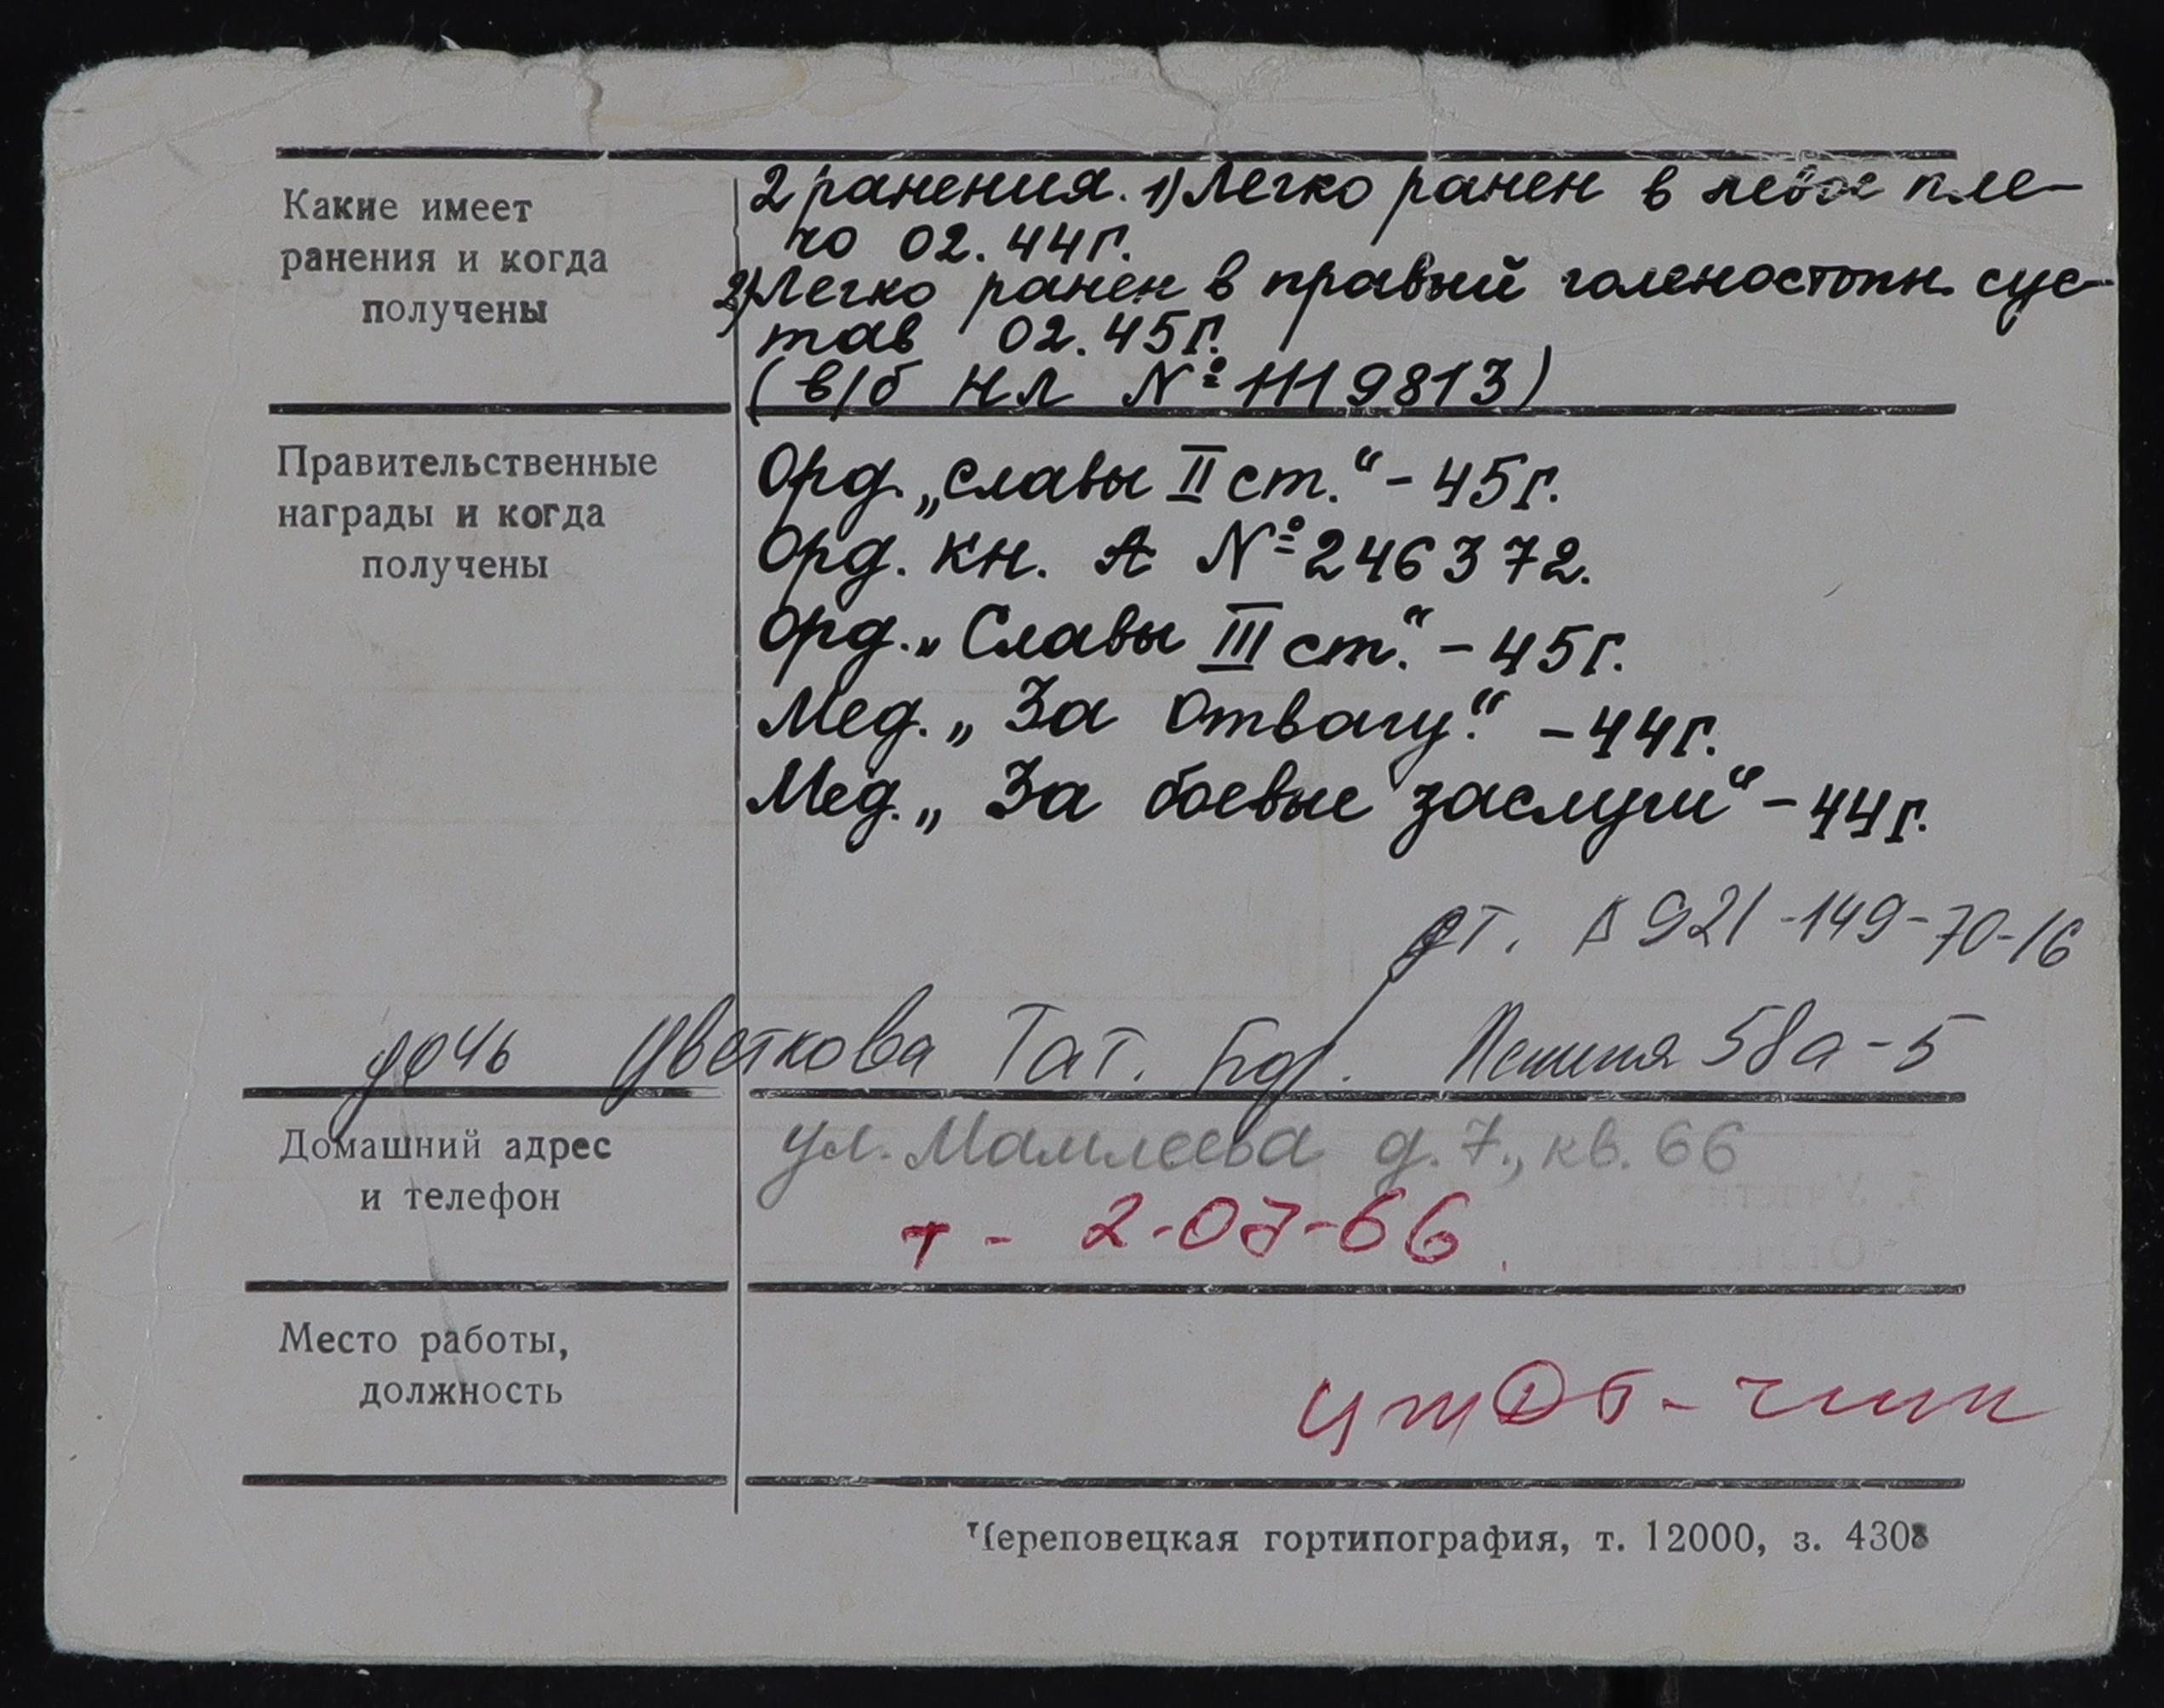 Какие имеет
ранения и когда
получены
2 ранения. 1) Легко ранен в левое пле-
чо 02.44г.
2) Легко ранен в правый голеностопн. сус-
тав 02.45г.
(в/б НЛ № 1119813)
Правительственные
награды и когда
получены
Орд. „Славы II ст.“ - 45г.
Орд. кн. А № 246372.
Орд. „Славы III ст.“ - 45г.
Мед. „За отвагу“ - 44г.
Мед. „За боевые заслуги“ - 44г.
дт. 8 921-149-70-16
дочь Цветкова Тат. Ленина 58а-5
Домашний адрес
и телефон
ул. Мамлеева д. 7., кв. 66
т - 2-07-66
Место работы,
должность
Череповецкая гортипография, т. 12000, з. 4308